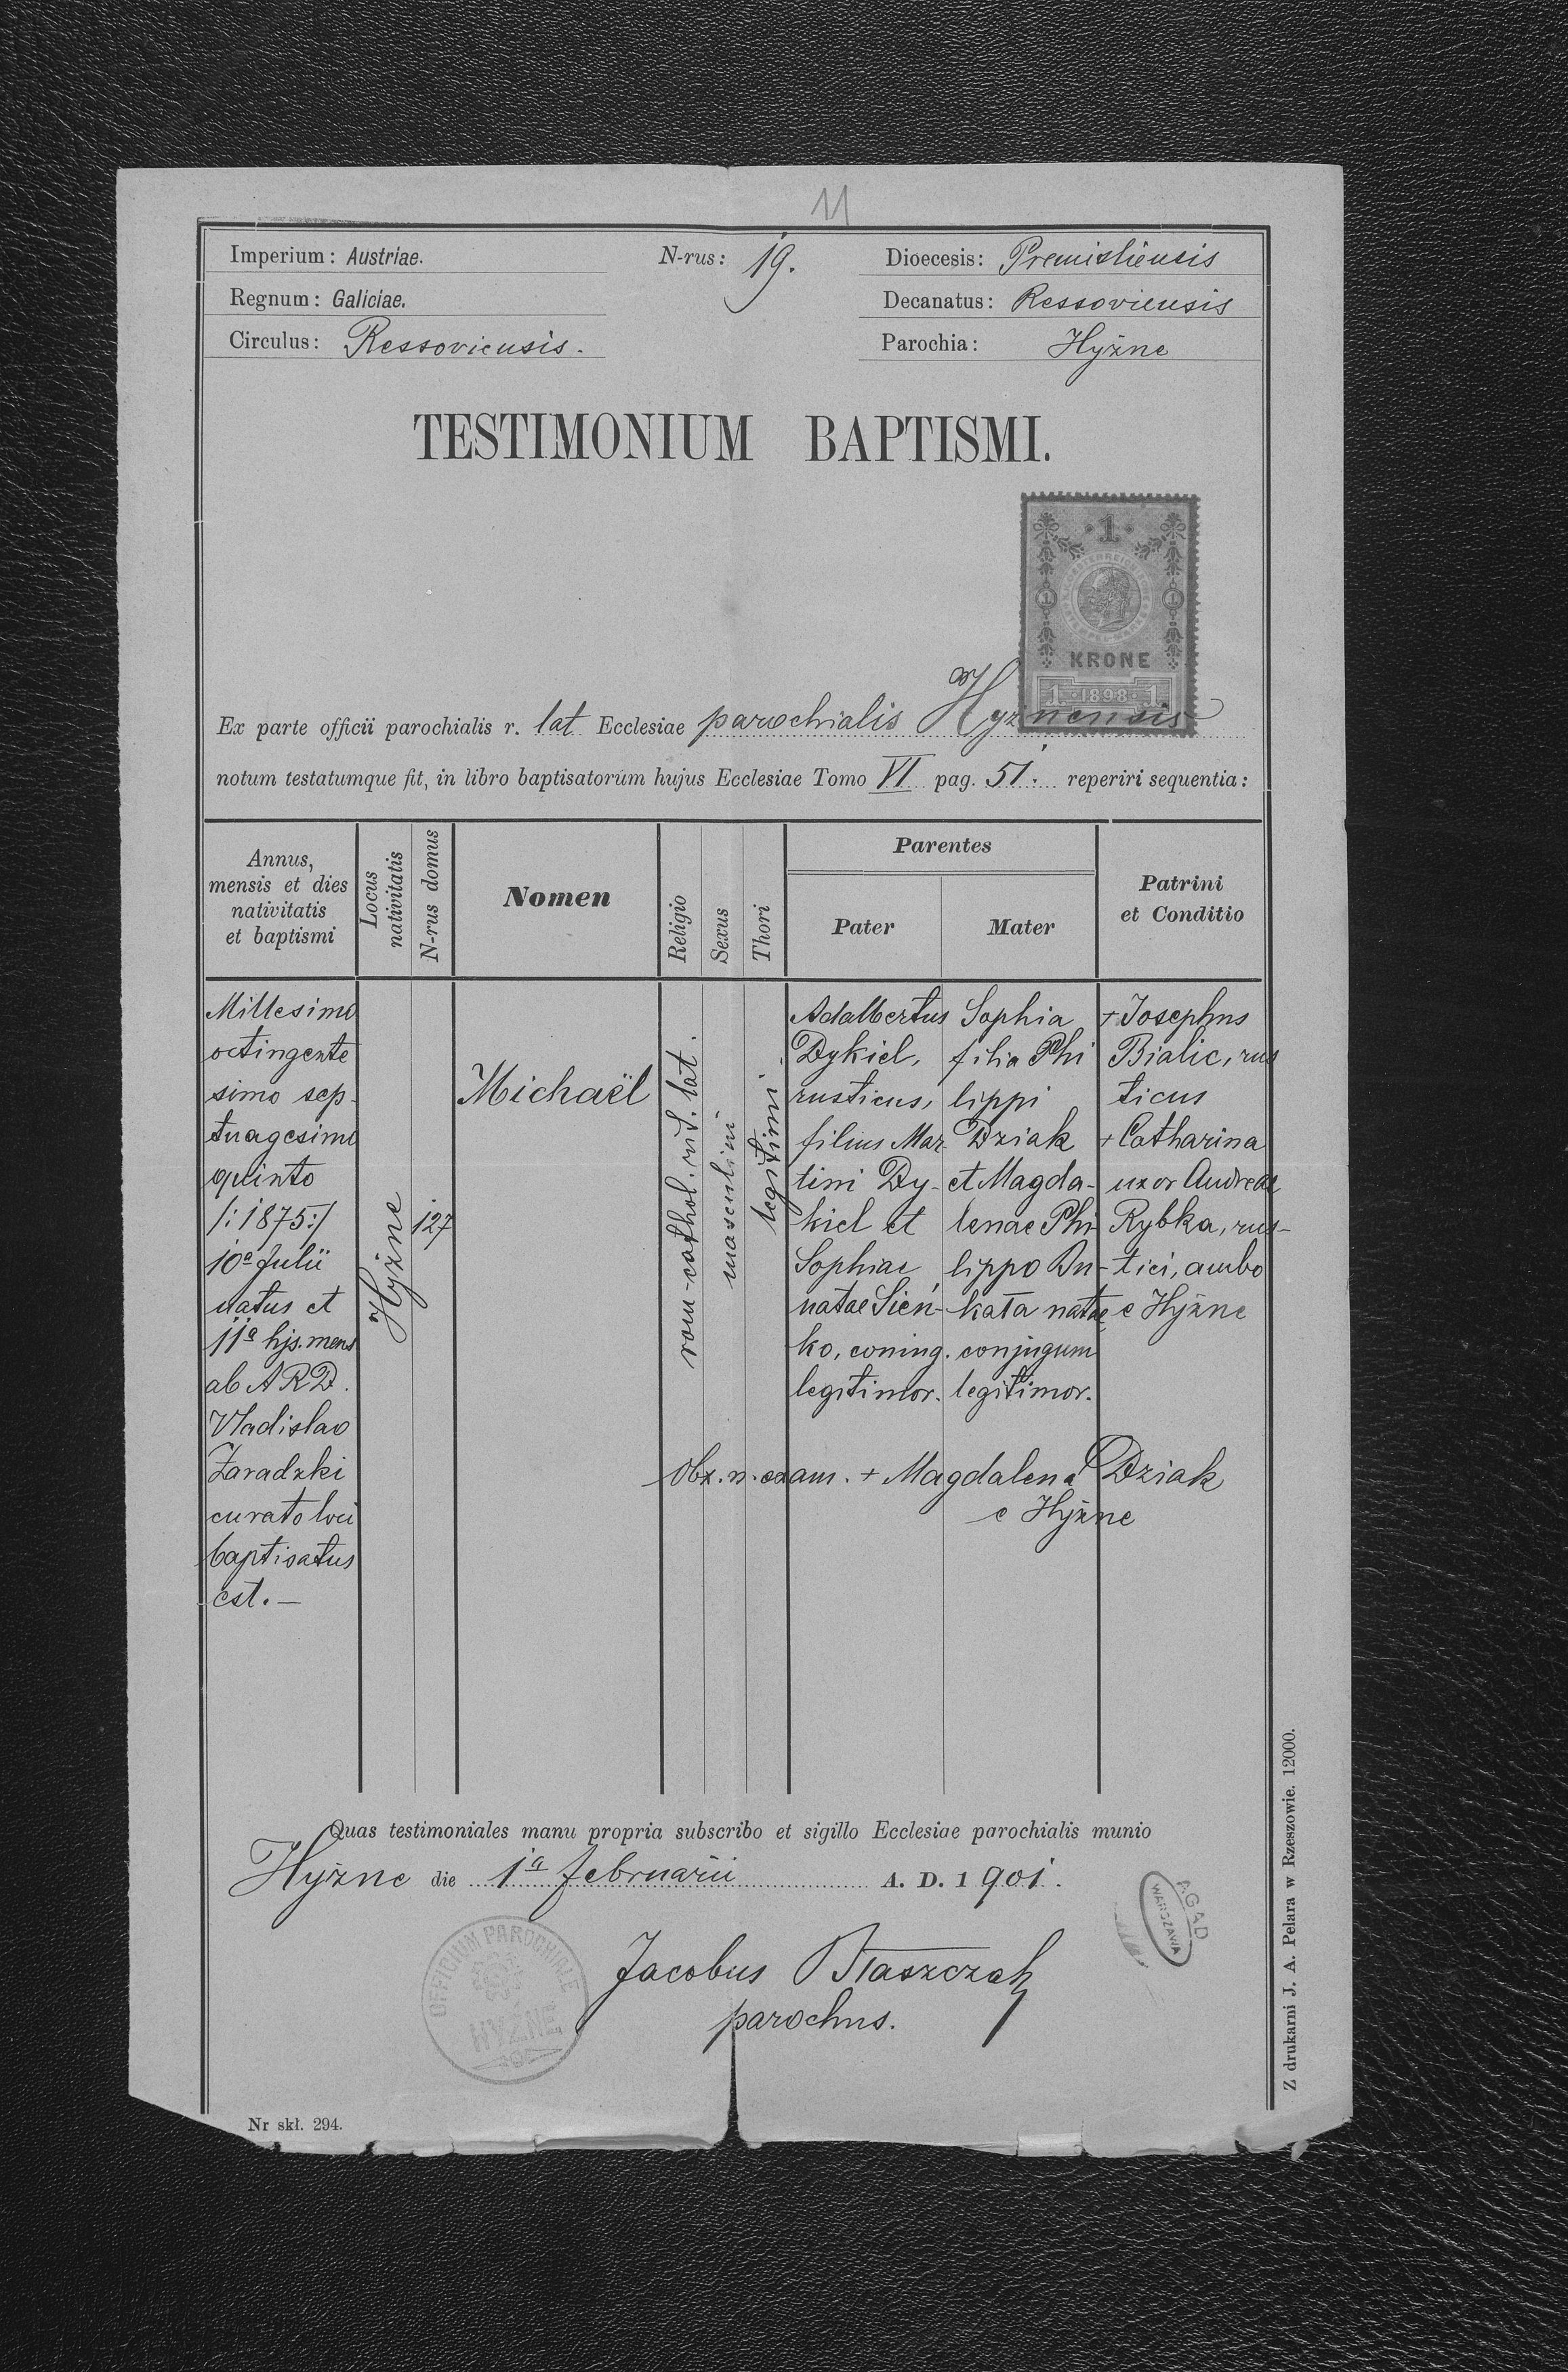 11
Imperium: Austriae.
N-rus: 19.
Dioecesis: Premisliensis
Regnum: Galiciae.
Decanatus: Ressoviensis
Circulus: Ressoviensis.
Parochia: Hyżne
TESTIMONIUM BAPTISMI.
1
KRONE
1 · 1898 · 1
Ex parte officii parochialis r. lat. Ecclesiae parochialis Hyżnensis
notum testatumque fit, in libro baptisatorum hujus Ecclesiae Tomo VI pag. 51. reperiri sequentia:
Annus,
mensis et dies
nativitatis
et baptismi
Locus
nativitatis
N-rus domus
Nomen
Religio
Sexus
Thori
Parentes
Pater
Mater
Patrini
et Conditio
Millesimo
octingente
simo sep-
tuagesimo
quinto
/:1875:/
10a Julii
natus et
11a hjs. mens
ab ARD.
Vladislao
Zaradzki
curato loci
baptisatus
est.—
Hyżne
127
Michaël
rom-cathol. rit. lat.
masculini
legitimi
Adalbertus
Dykiel,
rusticus,
filius Mar
tini Dy-
kiel et
Sophiae
natae Sień-
ko, coniug.
legitimor.
Sophia
filia Phi
lippi
Dziak
et Magda-
lenae Phi
lippo Du-
kata natae
conjugum
legitimor.
+ Josephus
Bialic, rus
ticus
+ Catharina
uxor Andreae
Rybka, rus-
tici, ambo
e Hyżne
Obx. n. exam. + Magdalena Dziak
e Hyżne
Quas testimoniales manu propria subscribo et sigillo Ecclesiae parochialis munio
Hyżne die 1a februarii A. D. 1901.
Jacobus Błaszczak
parochus.
OFFICIUM PAROCHIALE
HYŻNE
AGAD
WARSZAWA
Nr skł. 294.
Z drukarni J. A. Pelara w Rzeszowie. 12000.